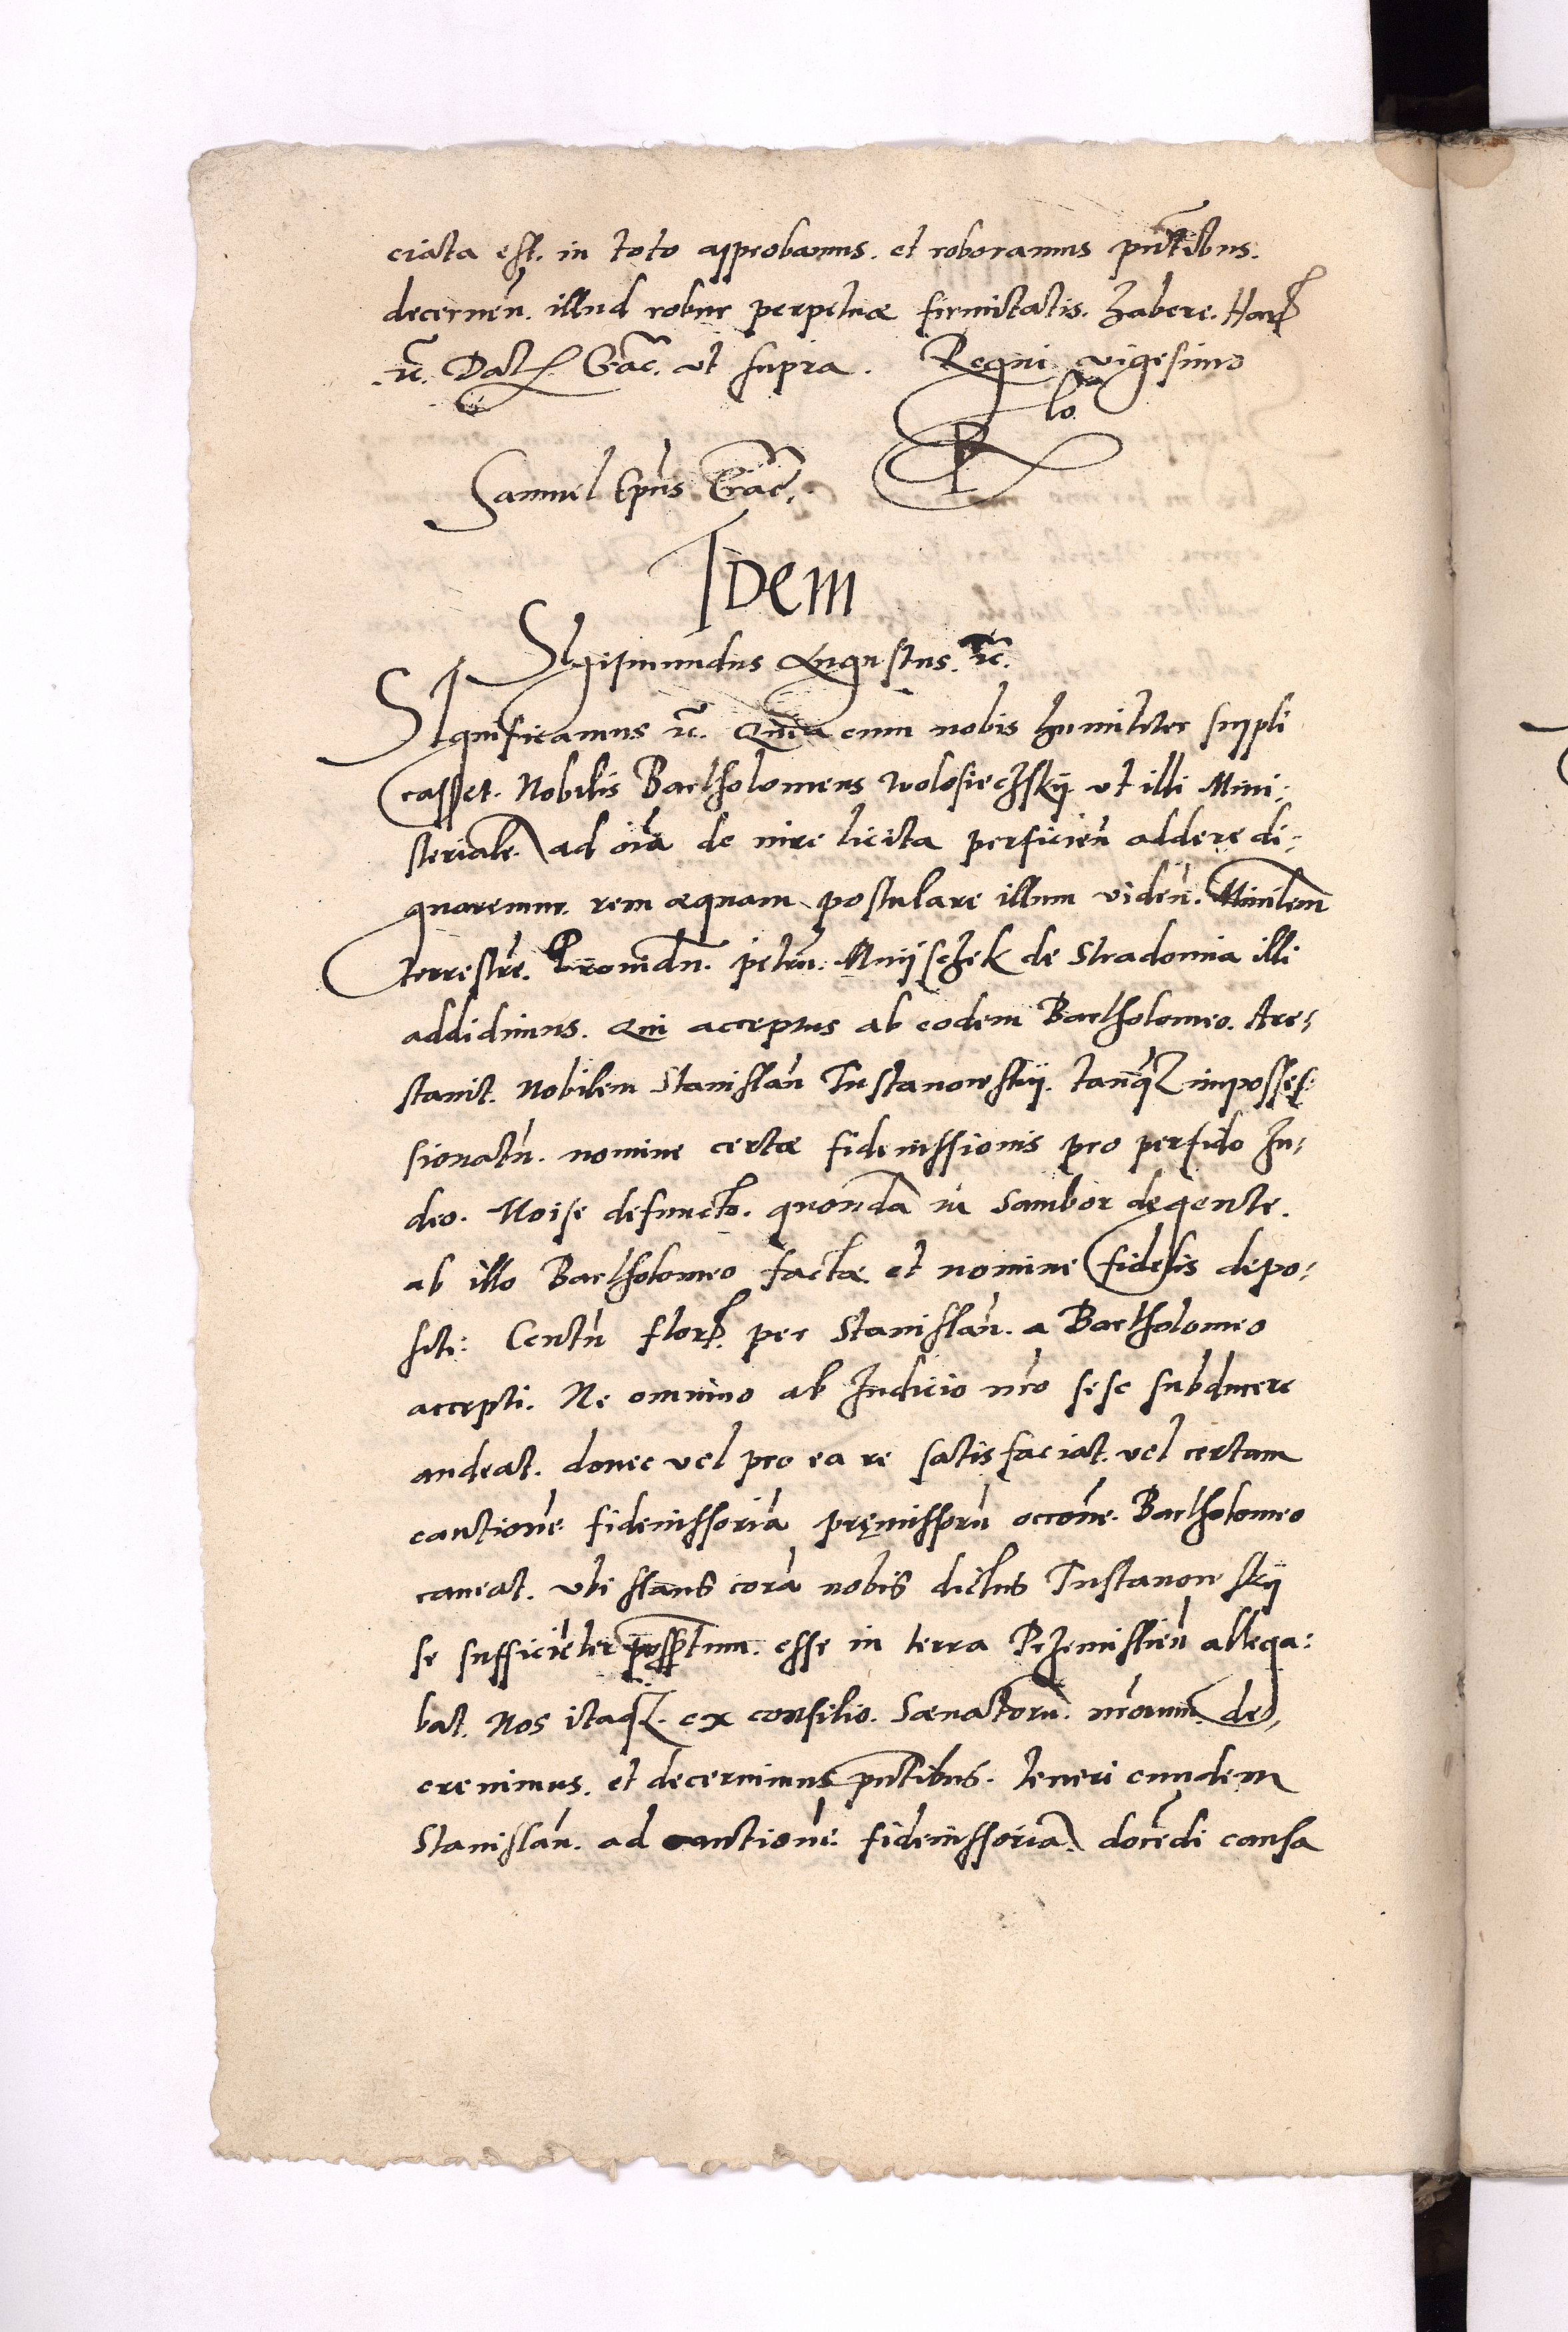 ciata est. in toto approbamus. et roboramus pñtibus.
decernen̄. illud robur perpetuæ firmitatis. habere. Har̄
.rc̄. Dat̄ Crac̄. ut supra. Regni vigesimo
Samuel Ep̄us Crac̄.
Idem
SIgismundus Augustus. rc̄.
SIgnificamus rc̄. Quia cum nobis humiliter suppli
casset. Nobilis Bartholomeus Wolosieczkÿ ut illi Mini:
steriale. ad oīa de iure licita perficien̄ addere di:
gnaremur. rem æquam postulare illum viden̄. Minilem̄
terrestrē. Providū. petrū. Mnÿschek de Stradomia illi
addidimus. Qui acceptus ab eodem Bartholomeo. Are:
stavit. Nobilem Stanislaū Tustanowskÿ. tanq̄ impossess:
sionatū. nomine certæ fideiussionis pro perfido Iu:
deo. Moise defuncto. quondā in Sambor degente.
ab illo Bartholomeo factæ et nomine fidelis depo:
siti: Centū flor̄. per Stanislaū. a Bartholomeo
accepti. Ne omnino ab Iudicio nr̄o sese subducere
audeat. donec vel pro ea re satisfaciat. vel certam
cautionē fideiussoriā pręmissorū occōne. Bartholomeo
caveat. ubi stans corā nobis dictus Tustanowskÿ
se sufficiēter poss̄tum. esse in terra Przemislien̄ allega:
bat. Nos itaq̄. ex consilio. Sænatorū. nr̄orum. de:
crevimus. et decernimus pñtibus. teneri eundem
Stanislaū. ad cautionē fideiussoriā. docēdi causa